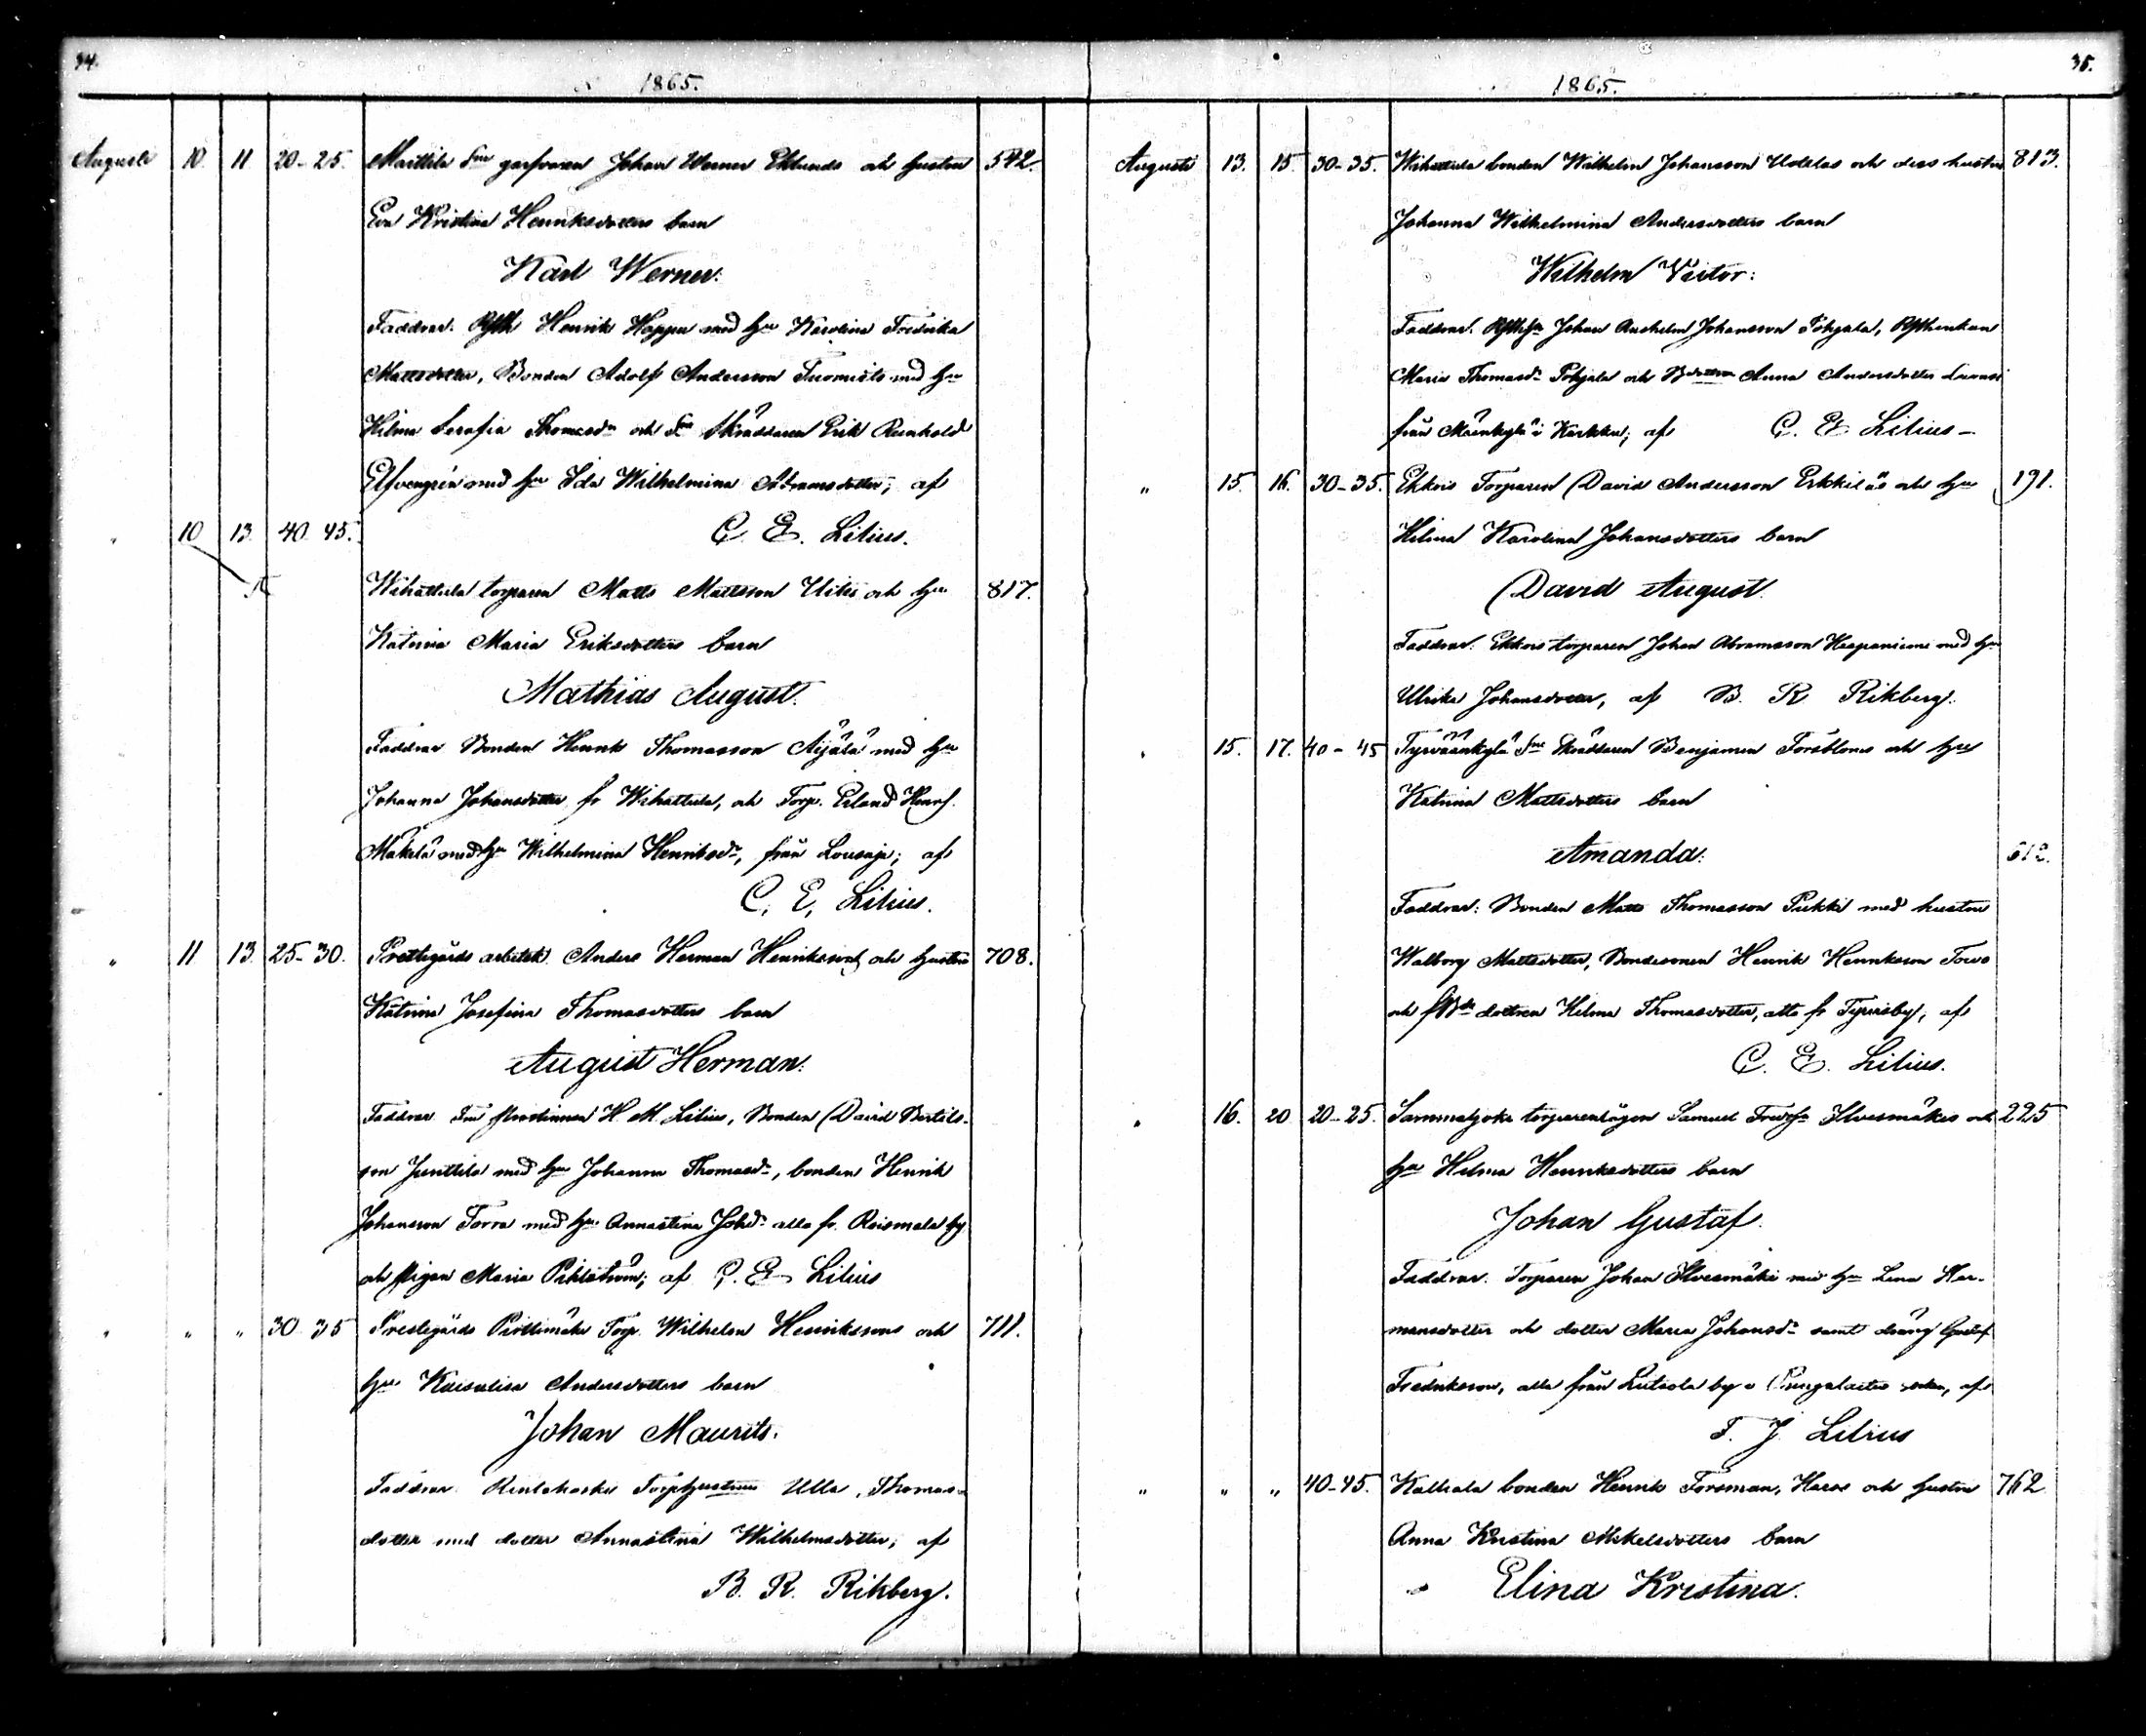 34.
1865.
Augusti 10 11 20-25. Marttila garfvaren Johan Werner Eklunds och hustru 542.
Eva Kristina Henriksdotters barn
Karl Werner.
Faddrar. Henrik Hoppu med hu Karolina Fredrika
Mattsdotter, Bonden Adolf Andersson Tuomisto med hu
Hilma Serafia Thomasdr och Skräddaren Erik Reinhold
Elfvengrén med hu Ida Wilhelmina Abramsdotter; af
" 10 13. 40 45. C. E. Lilius.
Wihattula torparen Matts Mattsson Uitis och hu 817.
Katrina Maria Eriksdotters barn
Mathias August.
Faddrar Bonden Henrik Thomasson Äijälä med hu
Johanna Johansdotter fr Wihattula, och Torp. Erland Henrs.
Mäkelä med hu Wilhelmina Henriksdr, från Lousaja; af
C. E. Lilius.
" 11 13. 25-30. Prestgårds arbetsk. Anders Herman Henrikssons och hustru 708.
Katrina Josefina Thomasdotters barn
August Herman.
Faddrar Fru Prostinnan H. M. Lilius, Bonden David Bertils-
son Junttila med hu Johanna Thomasdr, bonden Henrik
Johansson Torra med hu Annastina Johdr alla fr. Roismala by
och pigan Maria Pihlström; af C. E. Lilius
" " " 30 35 Prestegårds Torp. Wilhelm Henrikssons och 711.
hu Kaisalisa Andersdotters barn
Johan Maurits.
Faddrar. Torphustrun Ulla Thomas-
dotter med dotter Annastina Wilhelmsdotter; af
B. R. Rikberg.
35.
1865.
Augusti 13. 15. 30-35. Wihattula bonden Wilhelm Johansson och dess hustru 813.
Johanna Wilhelmina Andersdotters barn
Wilhelm Victor.
Faddrar. Johan Anshelm Johansson Pohjala, Rytthenkan
Maria Thomasdr Pohjala och Anna Andersdotter
från i Karkku; af C. E. Lilius -
" 15. 16. 30-35. Ekkois Torparen David Andersson Erkkiläs och hu 191.
Hilma Karolina Johansdotters barn
David August.
Faddrar. Ekkois torparen Johan Abramsson Haapaniemi med hu
Ulrika Johansdotter, af B. R. Rikberg.
15. 17. 40-45 Tyrväänkylä Skräddaren Benjamin Forsbloms och hu
Katrina Mattsdotters barn
Amanda. 612.
Faddrar: Bonden Matts Thomasson Pukki med hustru
Walborg Mattsdotter, Bondesonen Henrik Henriksson
och dottren Hilma Thomasdotter, alla fr Tyrvisby, af
C. E. Lilius.
" 16. 20 20-25. Sammaljoki torparemågen Samuel Ilvesmäkis och 225
hu Helena Henriksdotters barn
Johan Gustaf.
Faddrar. Torparen Johan Ilvesmäki med hu Lena Her-
mansdotter och dotter Maria Johansdr samt dräng Gustaf
Fredriksson, alla från by i Pungalaitio socken, af
F. J. Lilius
" " " 40-45. Kaltsila bonden Henrik Forsman, Haros och hustru 762
Anna Kristina Mikelsdotters barn
Elina Kristina.